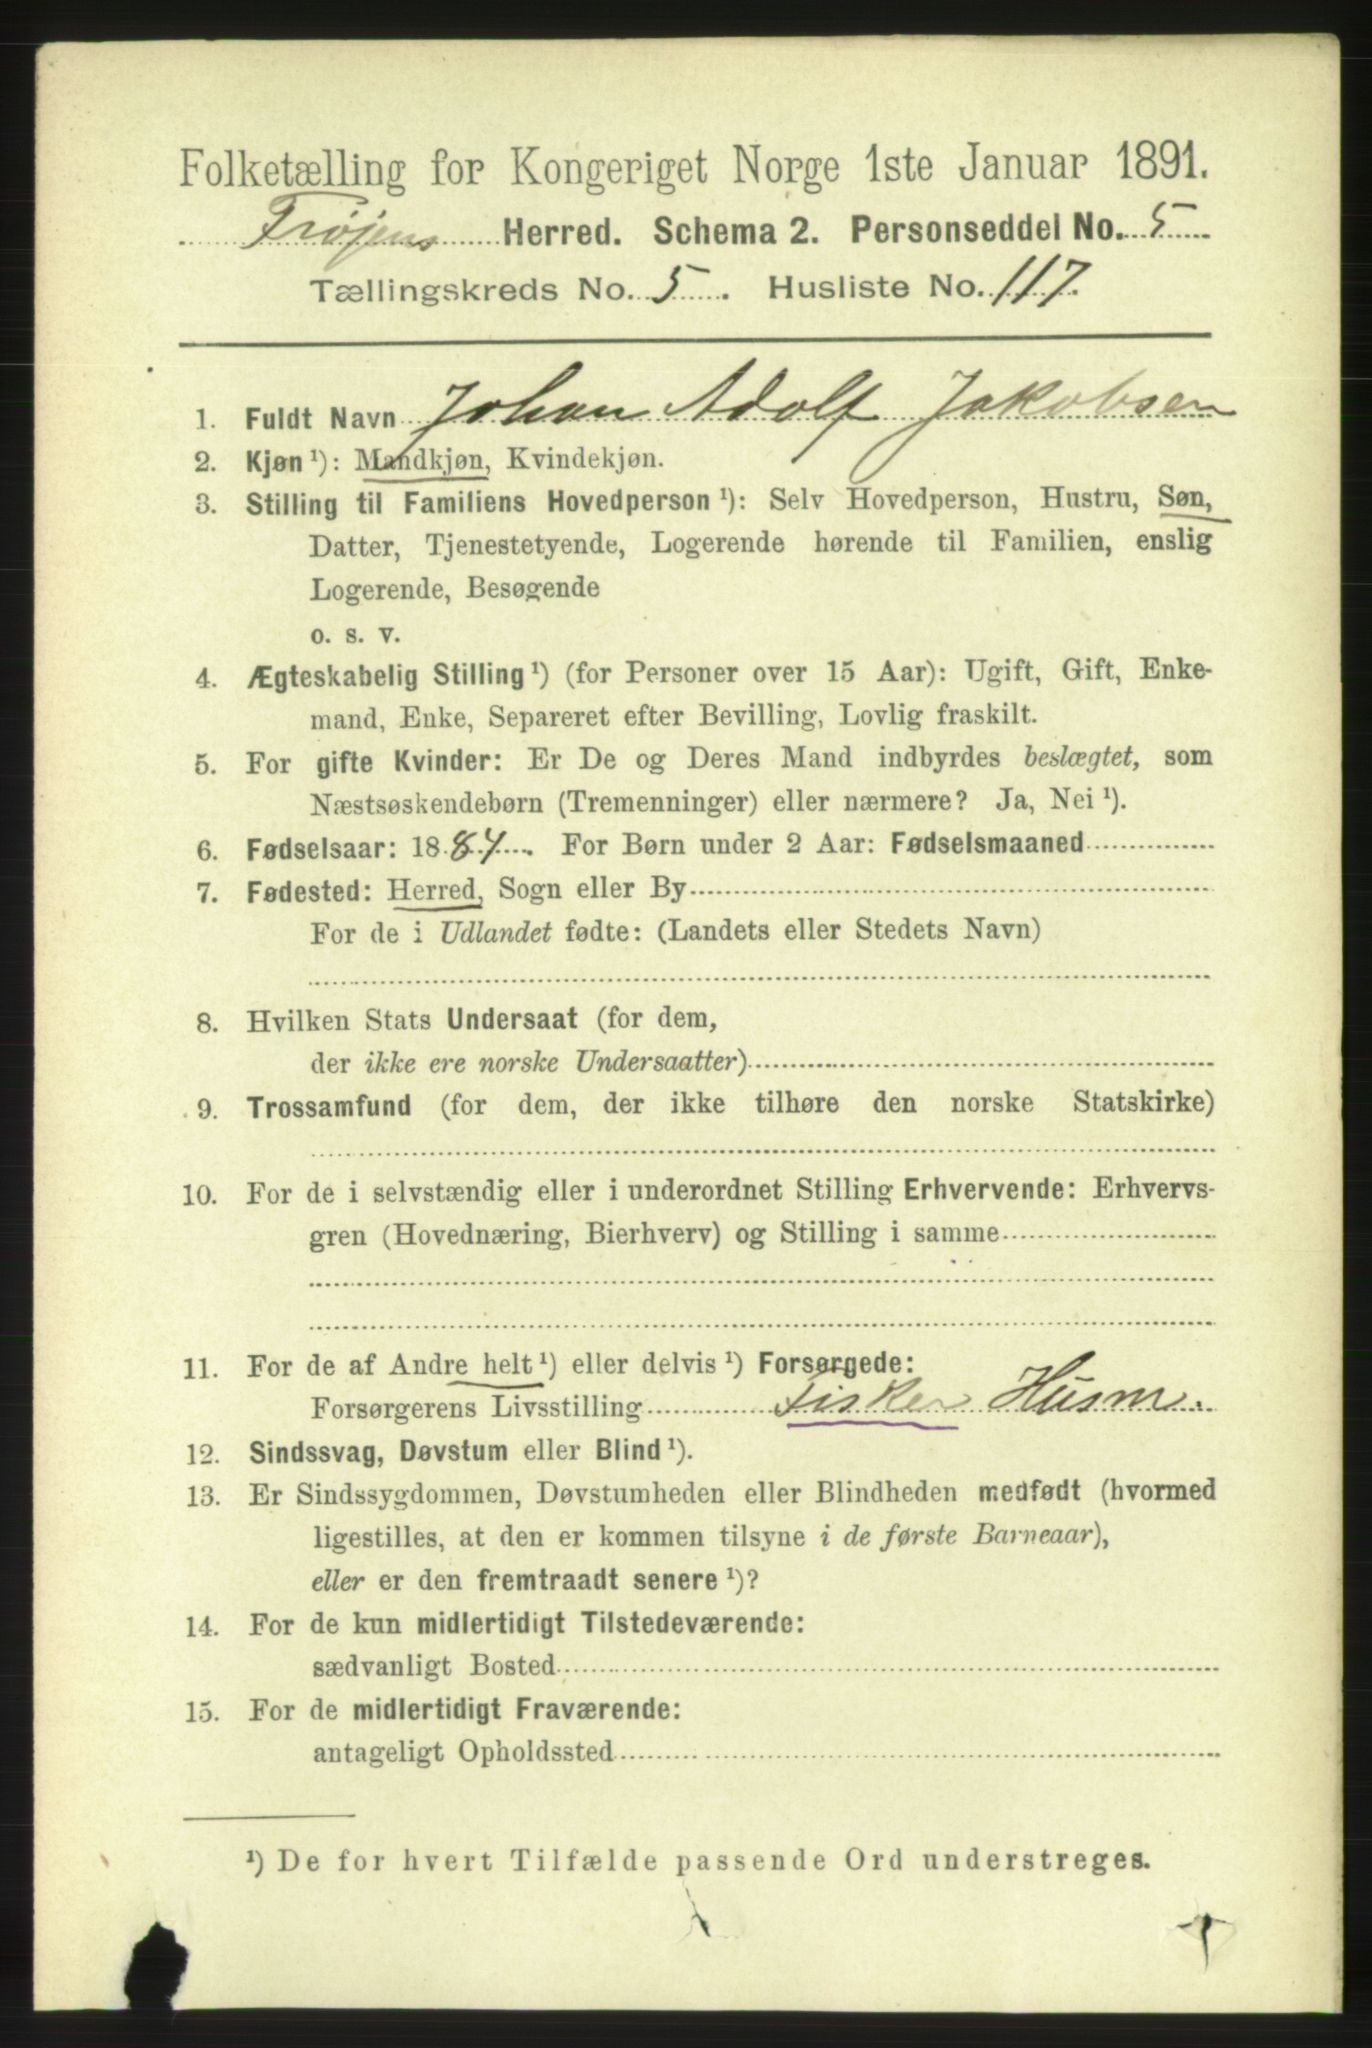 Folketælling for Kongeriget Norge 1ste Januar 1891.
Frøjens Herred. Schema 2. Personseddel No. 5
Tællingskreds No. 5. Husliste No. 117.
1. Fuldt Navn Johan Adolf Jakobsen
2. Kjøn ¹): Mandkjøn, Kvindekjøn.
3. Stilling til Familiens Hovedperson ¹): Selv Hovedperson, Hustru, Søn,
Datter, Tjenestetyende, Logerende hørende til Familien, enslig
Logerende, Besøgende
o. s. v.
4. Ægteskabelig Stilling ¹) (for Personer over 15 Aar): Ugift, Gift, Enke-
mand, Enke, Separeret efter Bevilling, Lovlig fraskilt.
5. For gifte Kvinder: Er De og Deres Mand indbyrdes beslægtet, som
Næstsøskendebørn (Tremenninger) eller nærmere? Ja, Nei ¹).
6. Fødselsaar: 1884. For Børn under 2 Aar: Fødselsmaaned
7. Fødested: Herred, Sogn eller By
For de i Udlandet fødte: (Landets eller Stedets Navn)
8. Hvilken Stats Undersaat (for dem,
der ikke ere norske Undersaatter)
9. Trossamfund (for dem, der ikke tilhøre den norske Statskirke)
10. For de i selvstændig eller i underordnet Stilling Erhvervende: Erhvervs-
gren (Hovednæring, Bierhverv) og Stilling i samme
11. For de af Andre helt ¹) eller delvis ¹) Forsørgede:
Forsørgerens Livsstilling Fisker Husm.
12. Sindssvag, Døvstum eller Blind ¹).
13. Er Sindssygdommen, Døvstumheden eller Blindheden medfødt (hvormed
ligestilles, at den er kommen tilsyne i de første Barneaar),
eller er den fremtraadt senere ¹)?
14. For de kun midlertidigt Tilstedeværende:
sædvanligt Bosted
15. For de midlertidigt Fraværende:
antageligt Opholdssted
¹) De for hvert Tilfælde passende Ord understreges.